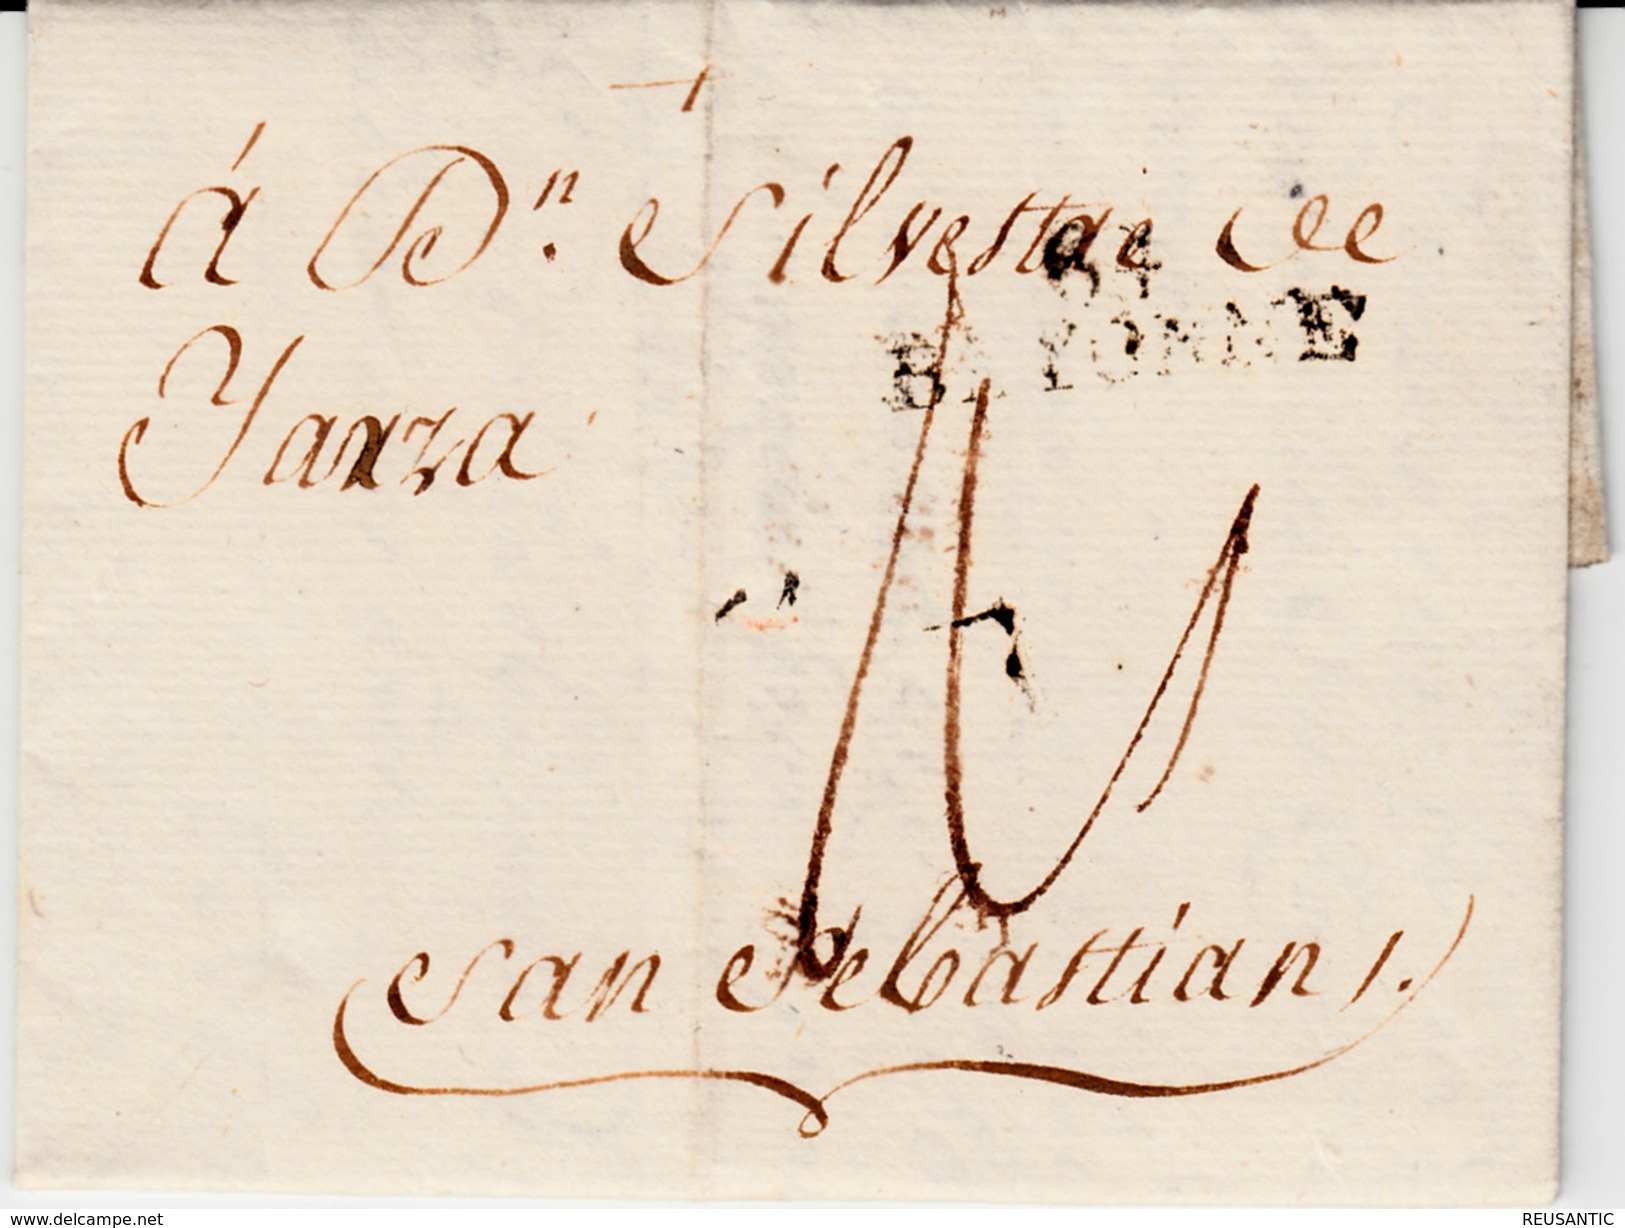 á D.ⁿ Silvestre de
64
BAYONNE
Yarza
San Sebastian
delcampe.net
REUSANTIC